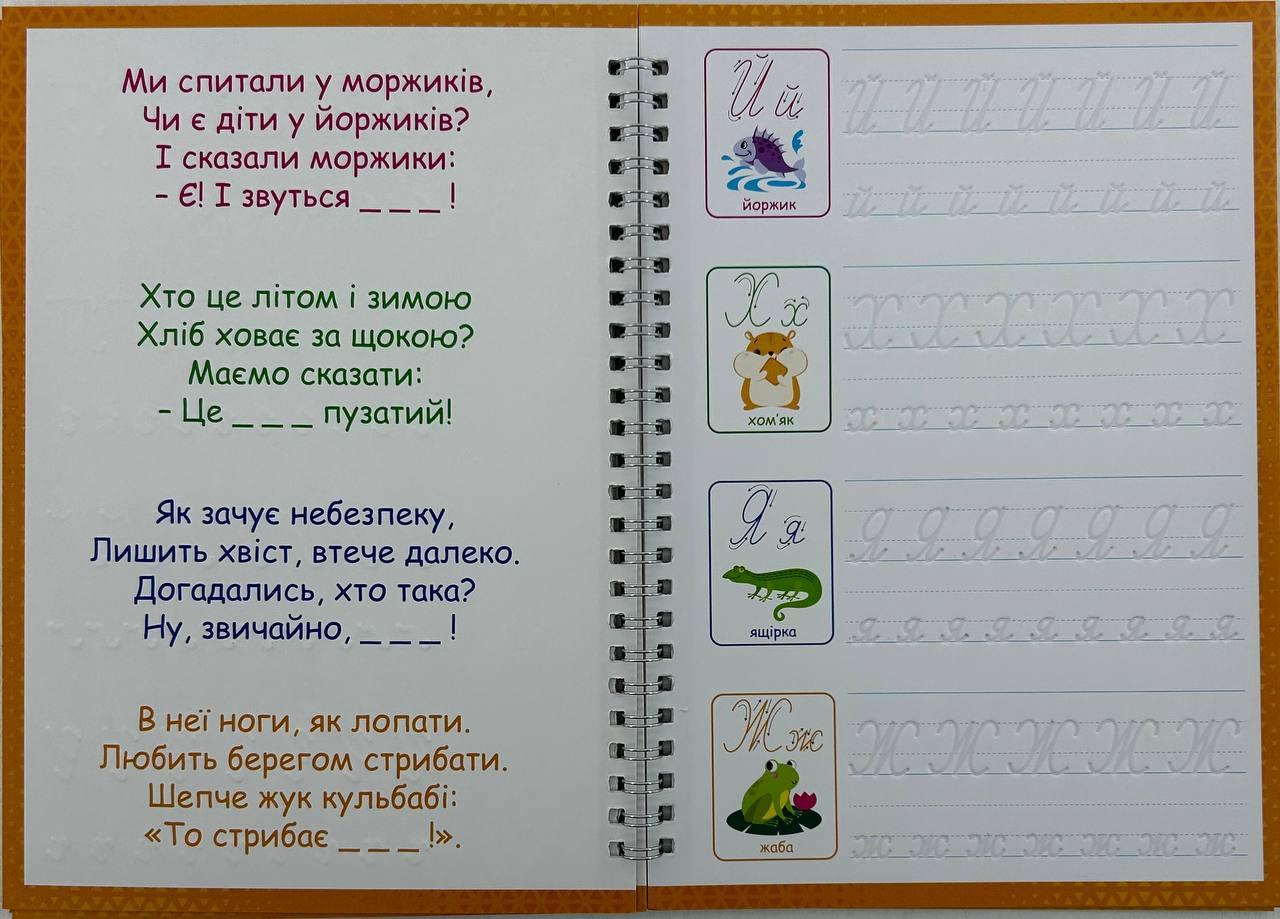 Ми спитали у моржиків,
Чи є діти у йоржиків?
І сказали моржики:
– Є! І звуться _ _ _ !
Хто це літом і зимою
Хліб ховає за щокою?
Маємо сказати:
– Це _ _ _ пузатий!
Як зачує небезпеку,
Лишить хвіст, втече далеко.
Догадались, хто така?
Ну, звичайно, _ _ _ !
В неї ноги, як лопати.
Любить берегом стрибати.
Шепче жук кульбабі:
«То стрибає _ _ _ !».
Й й
йоржик
Й Й Й Й Й Й Й
й й й й й й й й
Х х
хом'як
Х Х Х Х Х Х
х х х х х х х х
Я я
ящірка
Я Я Я Я Я Я Я
я я я я я я я я я
Ж ж
жаба
Ж Ж Ж Ж Ж
ж ж ж ж ж ж ж